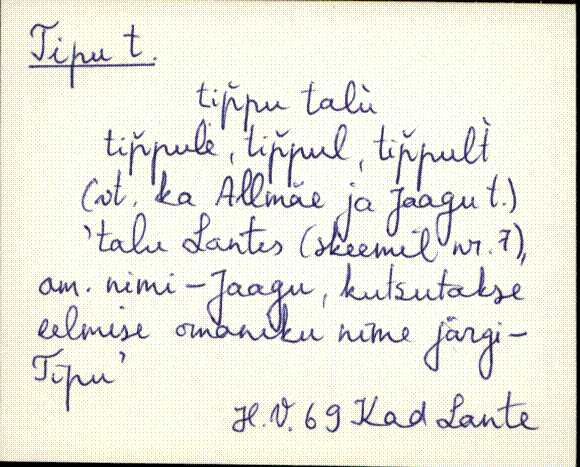 Tipu t.
tip̆pu talù
tip̆pulè, tip̆pul, tip̆pult̀
(vt. ka Allmäe ja Jaagu t.)
'talu Lantes (skeemil nr. 7),
am. nimi - Jaagu, kutsutakse
eelmise omaniku nime järgi -
Tipu'
H.V. 69 Kad Lante